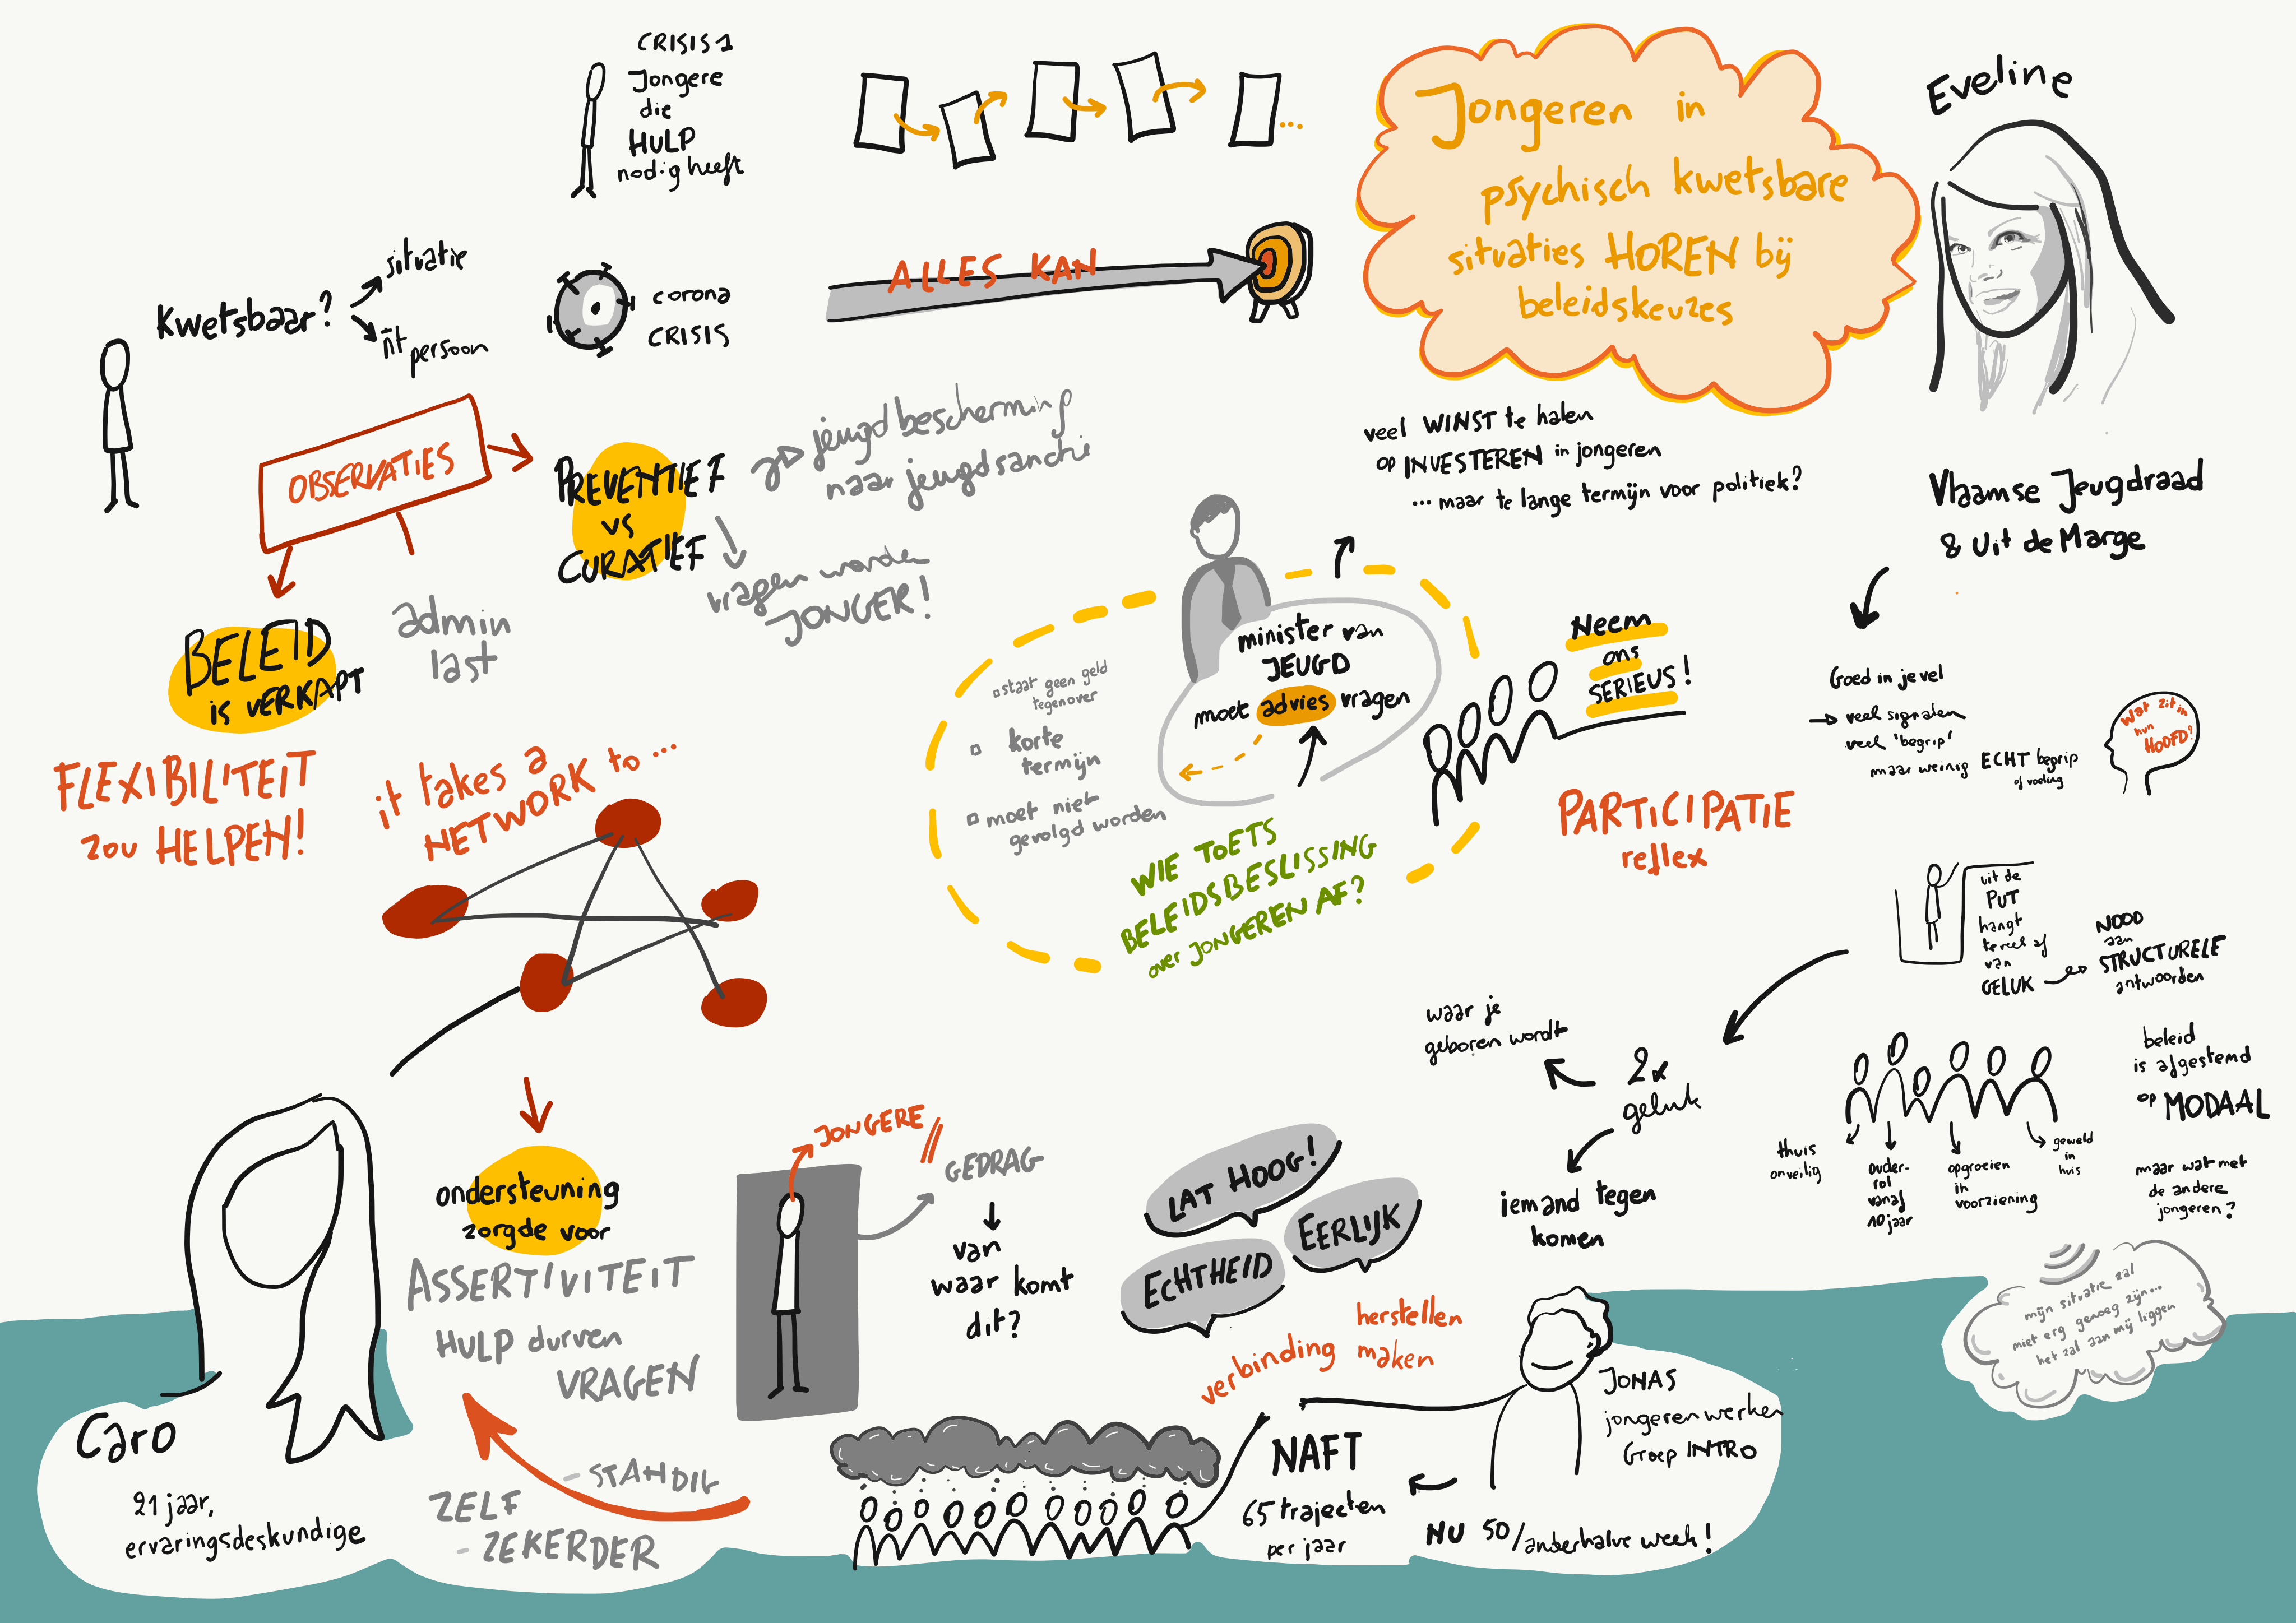 Jongeren in
psychisch kwetsbare
situaties HOREN bij
beleidskeuzes
Eveline
Vlaamse Jeugdraad
& Uit de Marge
CRISIS 1
Jongere
die
HULP
nodig heeft
Kwetsbaar?
situatie
n̄t persoon
corona
CRISIS
ALLES KAN
OBSERVATIES
PREVENTIEF
vs
CURATIEF
jeugdbescherming
naar jeugdsanctie
vragen worden
JONGER!
BELEID
is VERKAPT
admin
last
FLEXIBILITEIT
zou HELPEN!
it takes a
NETWORK to ...
veel WINST te halen
op INVESTEREN in jongeren
... maar te lange termijn voor politiek?
minister van
JEUGD
moet advies vragen
staat geen geld
tegenover
korte
termijn
moet niet
gevolgd worden
WIE TOETS
BELEIDSBESLISSING
over JONGEREN AF?
Neem
ons
SERIEUS!
PARTICIPATIE
reflex
Goed in je vel
veel signalen
veel 'begrip'
maar weinig ECHT begrip
of voeling
Wat zit in
hun
HOOFD?
uit de
PUT
hangt
te veel af
van
GELUK
NOOD
aan
STRUCTURELE
antwoorden
2x
geluk
waar je
geboren wordt
iemand tegen
komen
thuis
onveilig
ouder-
rol
vanaf
10 jaar
opgroeien
in
voorziening
geweld
in
huis
beleid
is afgestemd
op MODAAL
maar wat met
de andere
jongeren?
mijn situatie zal
niet erg genoeg zijn...
het zal aan mij liggen
ondersteuning
zorgde voor
ASSERTIVITEIT
HULP durven
VRAGEN
ZELF
- STANDIG
- ZEKERDER
Caro
21 jaar,
ervaringsdeskundige
JONGERE //
GEDRAG
van
waar komt
dit?
LAT HOOG!
EERLIJK
ECHTHEID
verbinding
herstellen
maken
JONAS
jongerenwerker
Groep INTRO
NAFT
65 trajecten
per jaar
NU 50/anderhalve week!